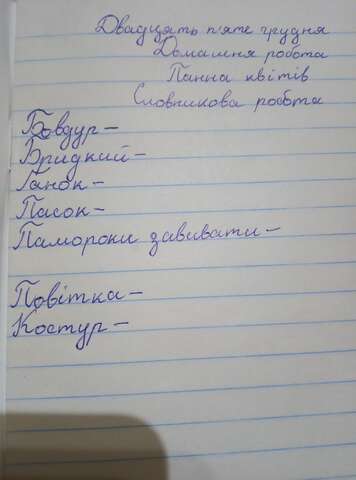 Двадцять п'яте грудня
Домашня робота
Панна квітів
Словникова робота
Бовдур –
Бридкий –
Ганок –
Пасок –
Памороки завивати –
Повітка –
Костур –